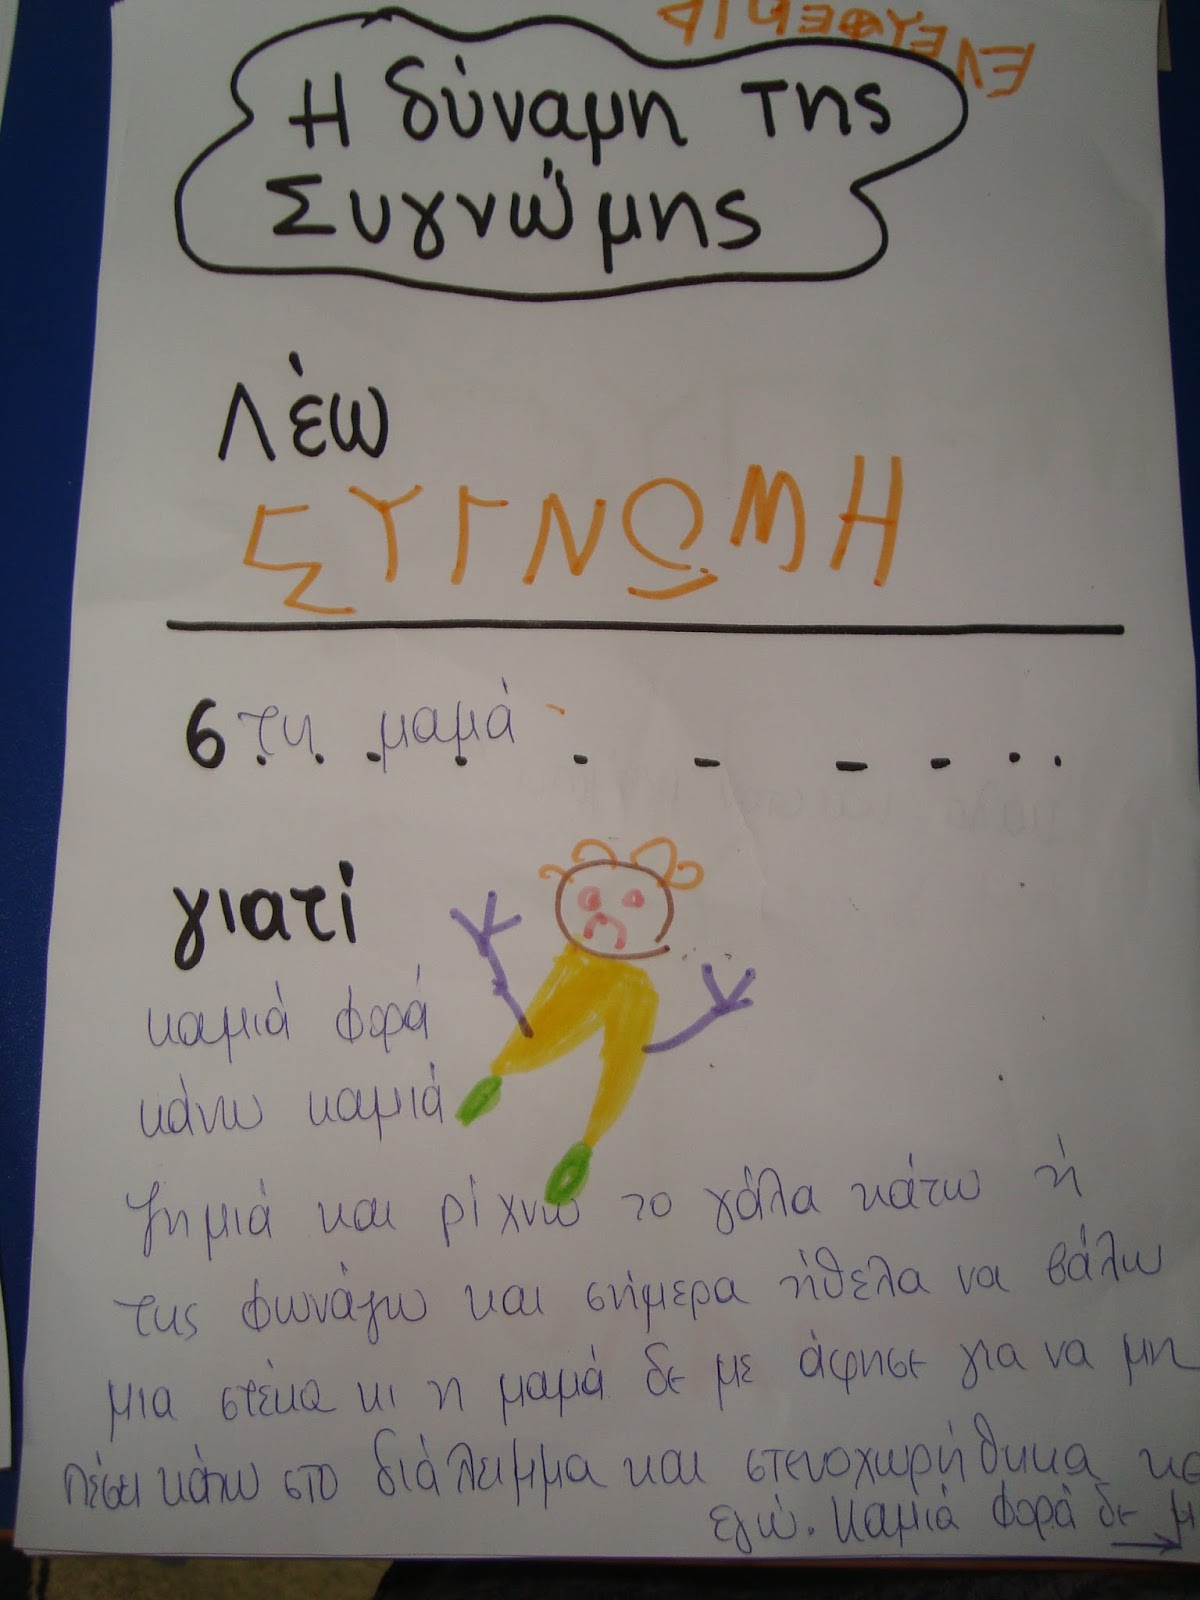 ΕΛΕΥΘΕΡΙΑ
Η δύναμη της
Συγνώμης
Λέω
ΣΥΓΝΩΜΗ
στη μαμά
γιατί
καμιά φορά
κάνω καμιά
ζημιά και ρίχνω το γάλα κάτω ή
της φωνάζω και σήμερα ήθελα να βάλω
μια στέκα κι η μαμά δε με άφησε για να μη
πέσει κάτω στο διάλειμμα και στενοχωρήθηκα κα
εγώ. Καμιά φορά δε μ